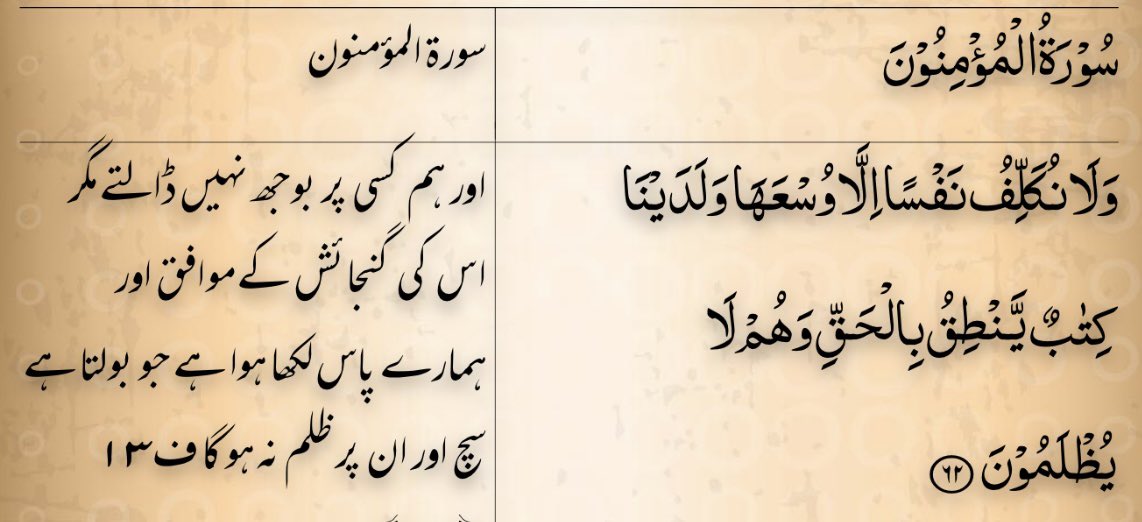 سُوْرَةُ الْمُؤْمِنُوْنَ
سورة المؤمنون
وَلَا نُكَلِّفُ نَفْسًا اِلَّا وُسْعَهَا وَلَدَيْنَا
كِتٰبٌ يَّنْطِقُ بِالْحَقِّ وَهُمْ لَا
يُظْلَمُوْنَ ﴿۶۲﴾
اور ہم کسی پر بوجھ نہیں ڈالتے مگر
اس کی گنجائش کے موافق اور
ہمارے پاس لکھا ہوا ہے جو بولتا ہے
سچ اور ان پر ظلم نہ ہو گا ف۱۳